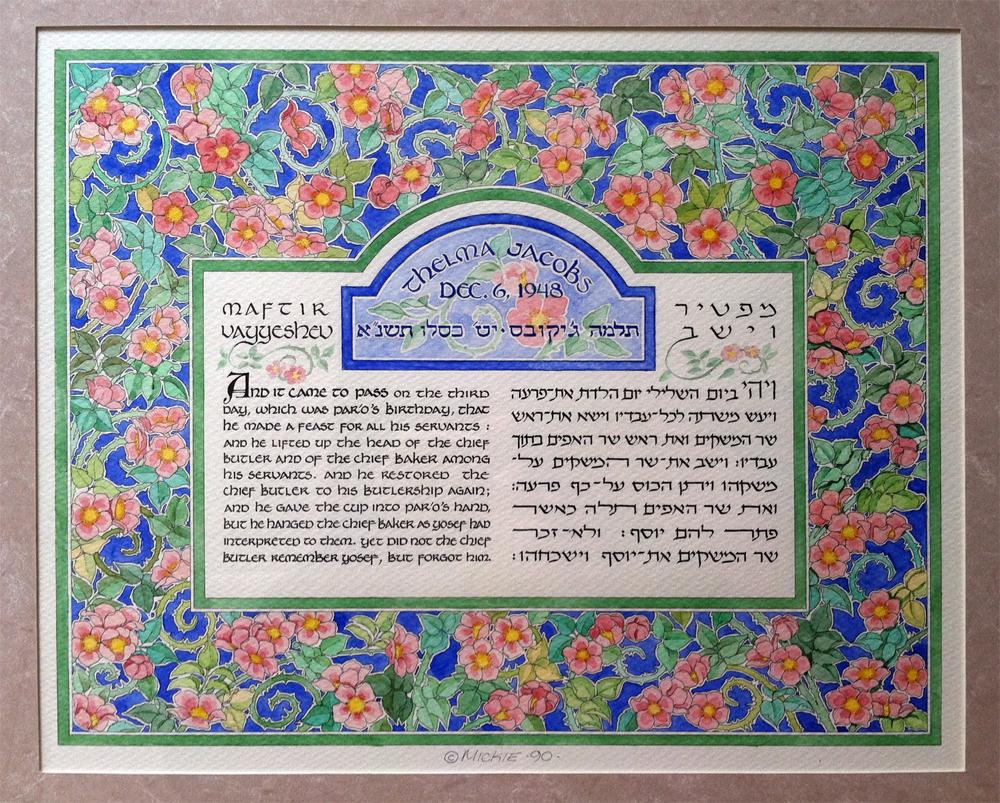 Thelma Jacobs
Dec. 6, 1948
תלמה ג'יקובס · יט' כסלו תשנ'א
Maftir
Vayyeshev
מפטיר
וישב
And it came to pass on the third
day, which was Par'o's birthday, that
he made a feast for all his servants :
and he lifted up the head of the chief
butler and of the chief baker among
his servants. And he restored the
chief butler to his butlership again;
and he gave the cup into Par'o's hand,
but he hanged the chief baker as Yosef had
interpreted to them. Yet did not the chief
butler remember Yosef, but forgot him.
ויהי ביום השלישי יום הלדת את־פרעה
ויעש משתה לכל־עבדיו וישא את־ראש
שר המשקים ואת ראש שר האפים בתוך
עבדיו: וישב את־שר המשקים על־
משקהו ויתן הכוס על־כף פרעה:
ואת שר האפים תלה כאשר
פתר להם יוסף: ולא־זכר
שר המשקים את־יוסף וישכחהו:
© Mickie ·90·